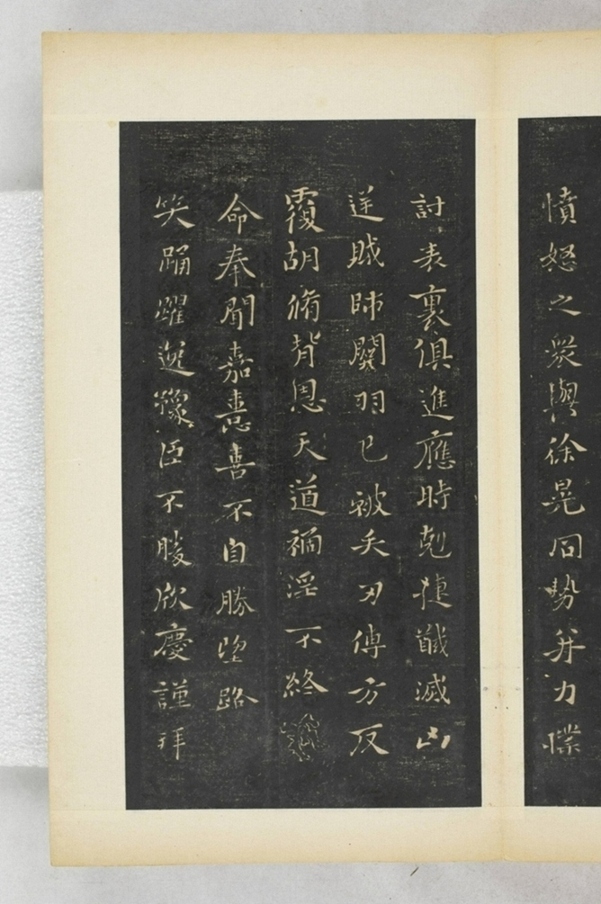 憤怒之衆與徐晃同勢并力撲
討表裏俱進應時剋捷馘滅凶
逆賊帥關羽已被矢刃傅方反
覆胡脩背恩天道禍淫不終
命奉聞嘉憙喜不自勝望路
笑踊躍逸豫臣不勝欣慶謹拜